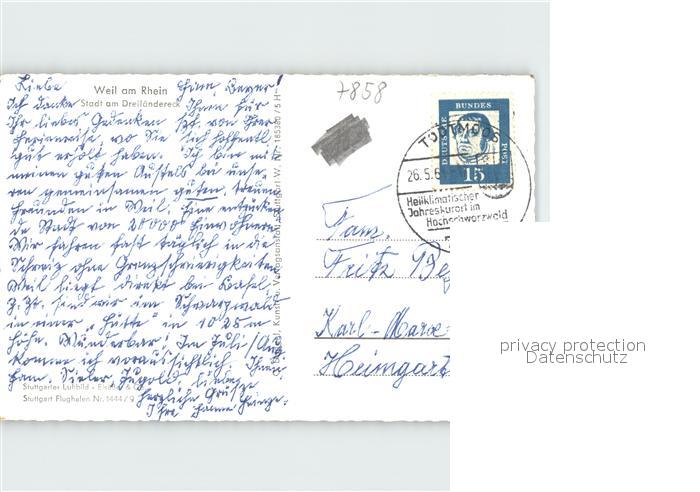 Weil am Rhein
Stadt am Dreiländereck
7858
Liebe Fam. Beyer!
Ich danke Ihnen für
Ihr liebes Gedenken von Ihrer
Ferienreise, wo Sie sich hoffentl.
gut erholt haben. Ich bin mit
meinen guten bei unse-
ren gemeinsamen guten, treuen
Freunden in Weil. Eine entzücken-
de Stadt von 20000 Einwohnern.
Wir fahren fast täglich in die
Schweiz ohne Grenzschwierigkeiten.
Weil liegt direkt bei Basel.
Z. Zt. sind wir im Schwarzwald
in einer „Hütte" in 1025 m
Höhe. Wunderbar! Im Juli/Aug.
komme ich voraussichtlich.
herzliche Grüße
Ihre
Stuttgarter Luftbild - Elsäßer & Co
Stuttgart Flughafen Nr. 1444/9
DEUTSCHE
BUNDES
POST
15
TODTMOOS
26.5.6
Heilklimatischer
Jahreskurort im
Hochschwarzwald
Fam.
Fritz Be
Karl-Marx-
Heimgart
privacy protection
Datenschutz